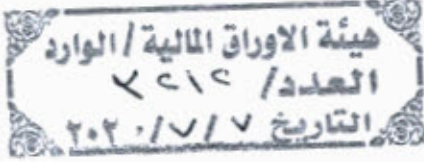 هيئة الاوراق المالية / الوارد
العدد/ ٢٢١٢
التاريخ ٢٠٢٠/٧/٧